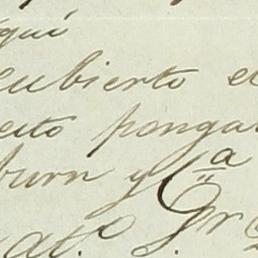 qui
cubierto e
eito ponga
burn y Cª
at.º S. Gr